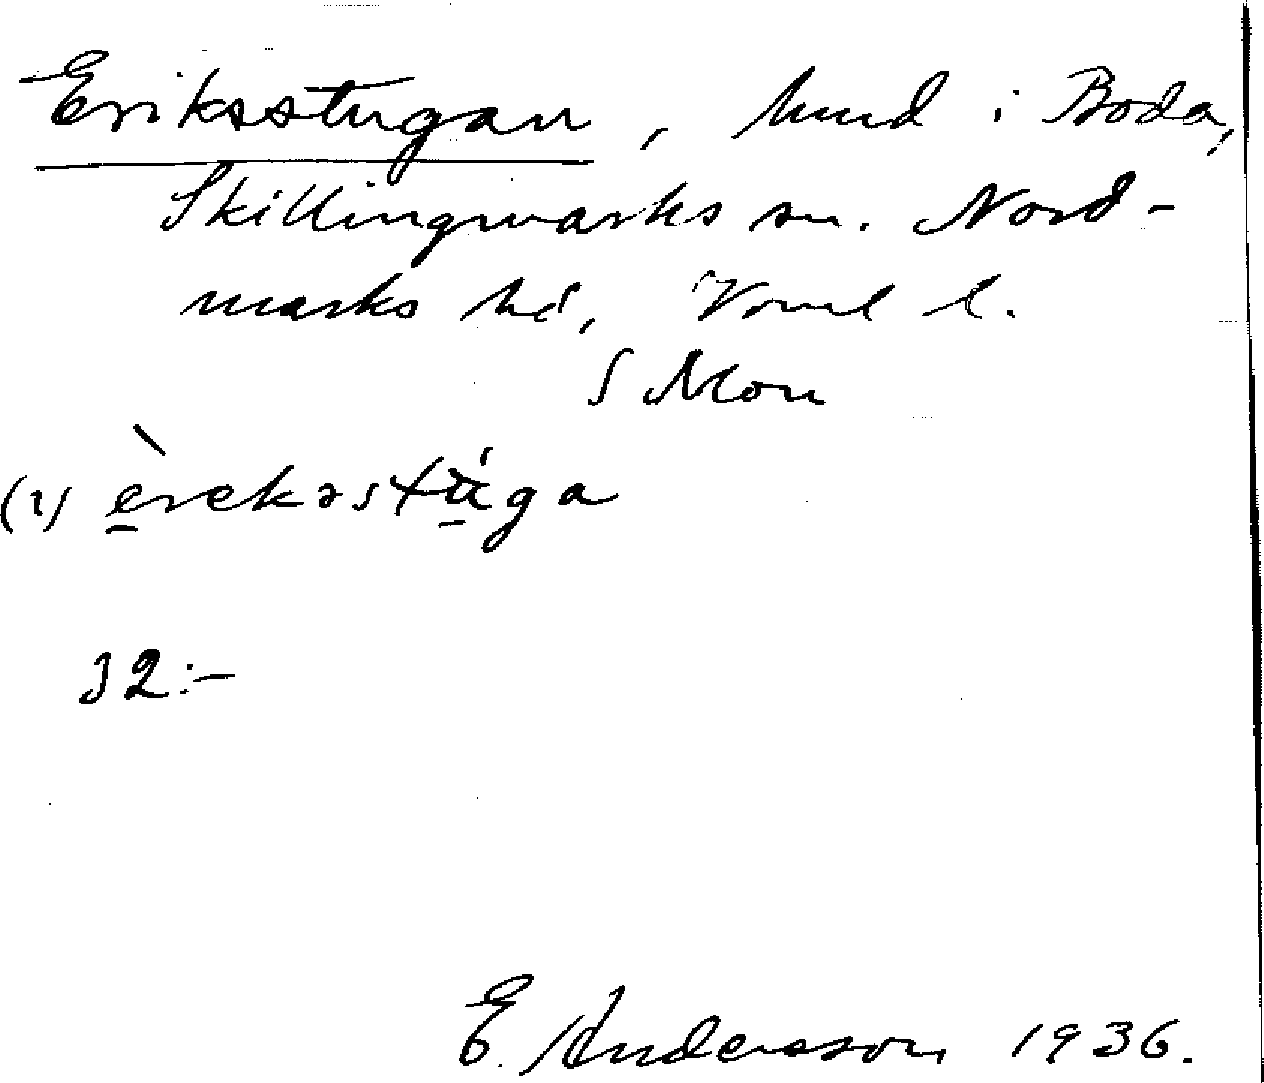 Eriksstugan, hmd i Boda,
Skillingmarks sn. Nord-
marks hd, Vrml l.
S Mon
(1) èrekəstúga
32:-
E. Andersson 1936.